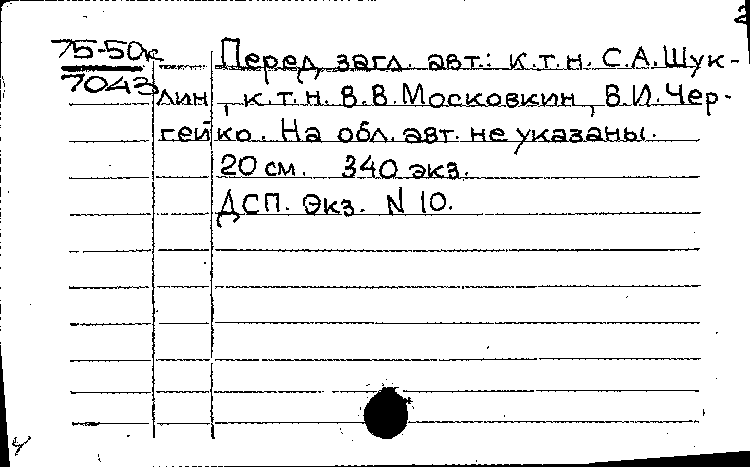 2
75-50к
7043
Перед загл. авт.: к.т.н. С.А.Шук-
лин, к.т.н. В.В.Московкин, В.И.Чер-
гейко. На обл. авт. не указаны.
20 см. 340 экз.
ДСП. Экз. N 10.